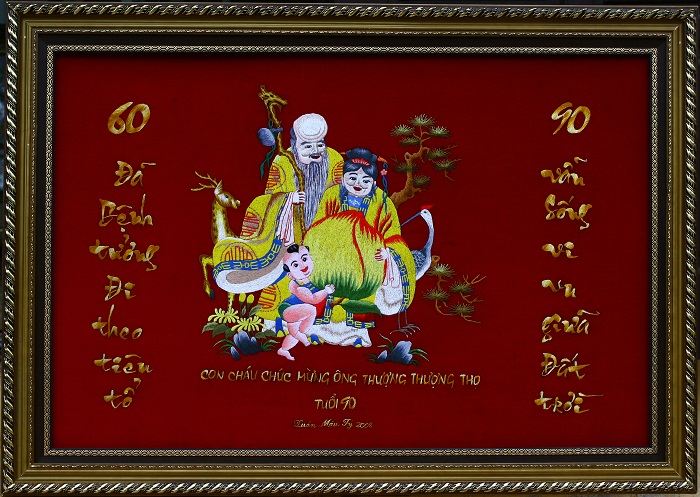 60
Đã
Bệnh
tưởng
Đi
theo
tiên
tổ
90
vẫn
Sống
vi
vu
giữa
Đất
trời
CON CHÁU CHÚC MỪNG ÔNG THƯỢNG THƯỢNG THỌ
TUỔI 90
Xuân Mậu Tý 2008